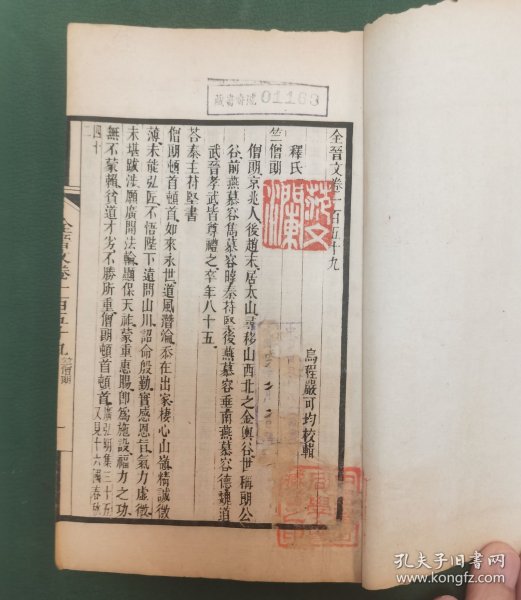 全晉文卷一百五十九
烏程嚴可均校輯
釋氏
竺僧朗
僧朗京兆人後趙末居太山尋移山西北之金輿谷世稱朗公
谷前燕慕容儁慕容暐秦苻堅後燕慕容垂南燕慕容德魏道
武晉孝武皆尊禮之卒年八十五
荅秦主苻堅書
僧朗頓首頓首如來永世道風潛淪忝在出家棲心山嶺精誠微
薄未能弘匠不悟陛下遠問山川詔命殷勤實感恩旨氣力虛微
未堪跋涉願廣開法輪顯保天祚蒙重惠賜卽爲施設福力之功
無不蒙賴貧道才劣不勝所重僧朗頓首頓首廣弘明集三十五
又見十六國春秋
四十二
全晉文卷一百五十九 竺僧朗
一
藏書帝陵 01163
孔夫子旧书网
www.kongfz.com